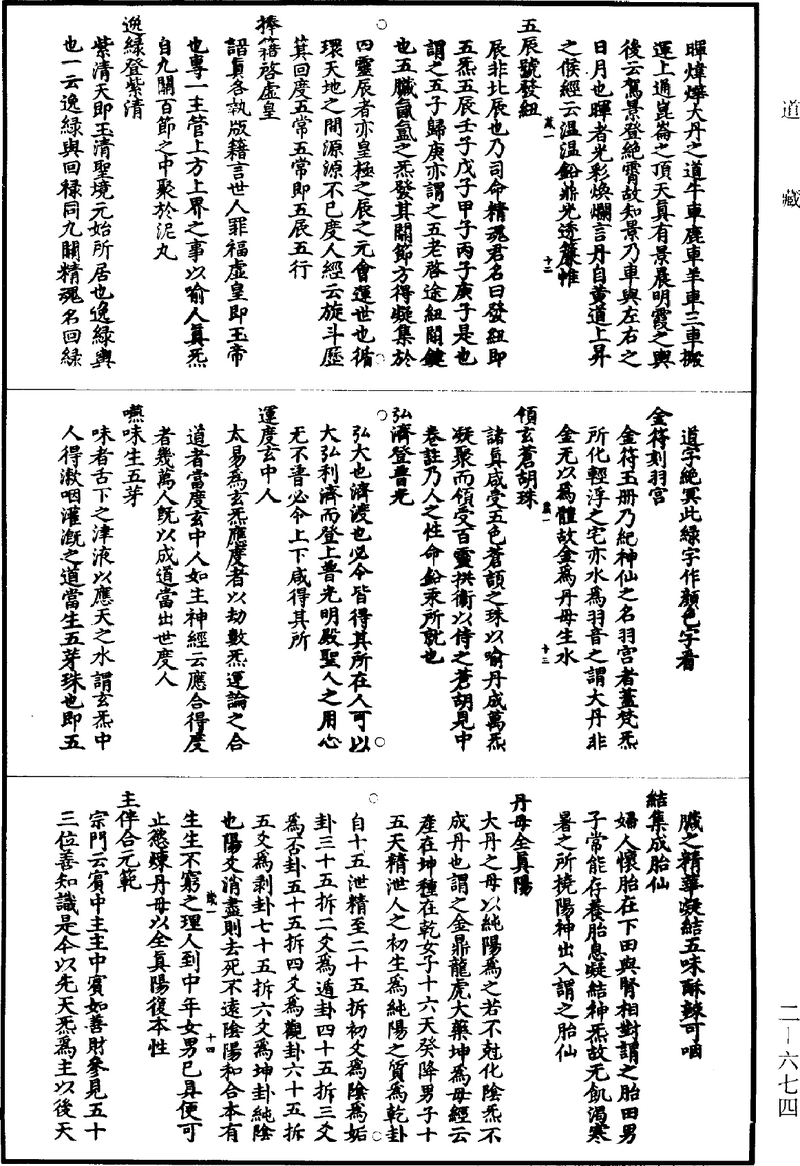 道藏
暉煒燁大丹之道牛車鹿車羊車三車搬
運上通崑崙之頂天真有景晨明霞之輿
後云駕景登絕霄故知景乃車輿左右之
日月也暉者光彩煥爛言丹自黃道上昇
之候經云溫溫鉛鼎光透簾帷
歲一 十二
五辰號發紐
辰非北辰也乃司命精魂君名曰發紐即
五炁五辰壬子戊子甲子丙子庚子是也
謂之五子歸庚亦謂之五老啓途紐關鍵
也五臟氤氳之炁發其關節方得凝集於
四靈辰者亦皇極之辰之元會運世也循
環天地之間源源不已度人經云旋斗歷
箕回度五常五常即五辰五行
捧籍啓虛皇
詔真各執版籍言世人罪福虛皇即玉帝
也專一主管上方上界之事以喻人真炁
自九關百節之中聚於泥丸
逸綠登紫清
紫清天即玉清聖境元始所居也逸綠與
也一云逸綠與回祿同九關精魂名回綠
道字絕冥此綠字作顏色字看
金符刻羽宮
金符玉册乃紀神仙之名羽宮者蓋梵炁
所化輕浮之宅亦水為羽音之謂大丹非
金无以為體故金為丹母生水
歲一 十三
領玄蒼胡珠
諸真咸受五色蒼頷之珠以喻丹成萬炁
凝聚而領受百靈拱衛以侍之蒼胡見中
卷註乃人之性命鉛汞所就也
弘濟登普光
弘大也濟渡也必令皆得其所在人可以
大弘利濟而登上普光明殿聖人之用心
无不普必令上下咸得其所
運度玄中人
太易為玄炁應度者以劫數炁運論之合
道者當度玄中人如主神經云應合得度
者幾萬人既以成道當出世度人
嚥味生五芽
味者舌下之津液以應天之水謂玄炁中
人得漱咽灌溉之道當生五芽珠也即五
臟之精華凝結五味酥辣可咽
結集成胎仙
婦人懷胎在下田與腎相對謂之胎田男
子常能存養胎息凝結神炁故无飢渴寒
暑之所撓陽神出入謂之胎仙
丹母全真陽
大丹之母以純陽為之若不尅化陰炁不
成丹也謂之金鼎龍虎大藥坤為母經云
產在坤種在乾女子十六天癸降男子十
五天精泄人之初生為純陽之質為乾卦
自十五泄精至二十五拆初爻為陰為姤
卦三十五拆二爻為遁卦四十五拆三爻
為否卦五十五拆四爻為觀卦六十五拆
五爻為剥卦七十五拆六爻為坤卦純陰
也陽爻消盡則去死不遠陰陽和合本有
生生不窮之理人到中年女男已具便可
歲一 十四
止慾煉丹母以全真陽復本性
主伴合元範
宗門云賓中主主中賓如善財參見五十
三位善知識是今以先天炁為主以後天
二－六七四